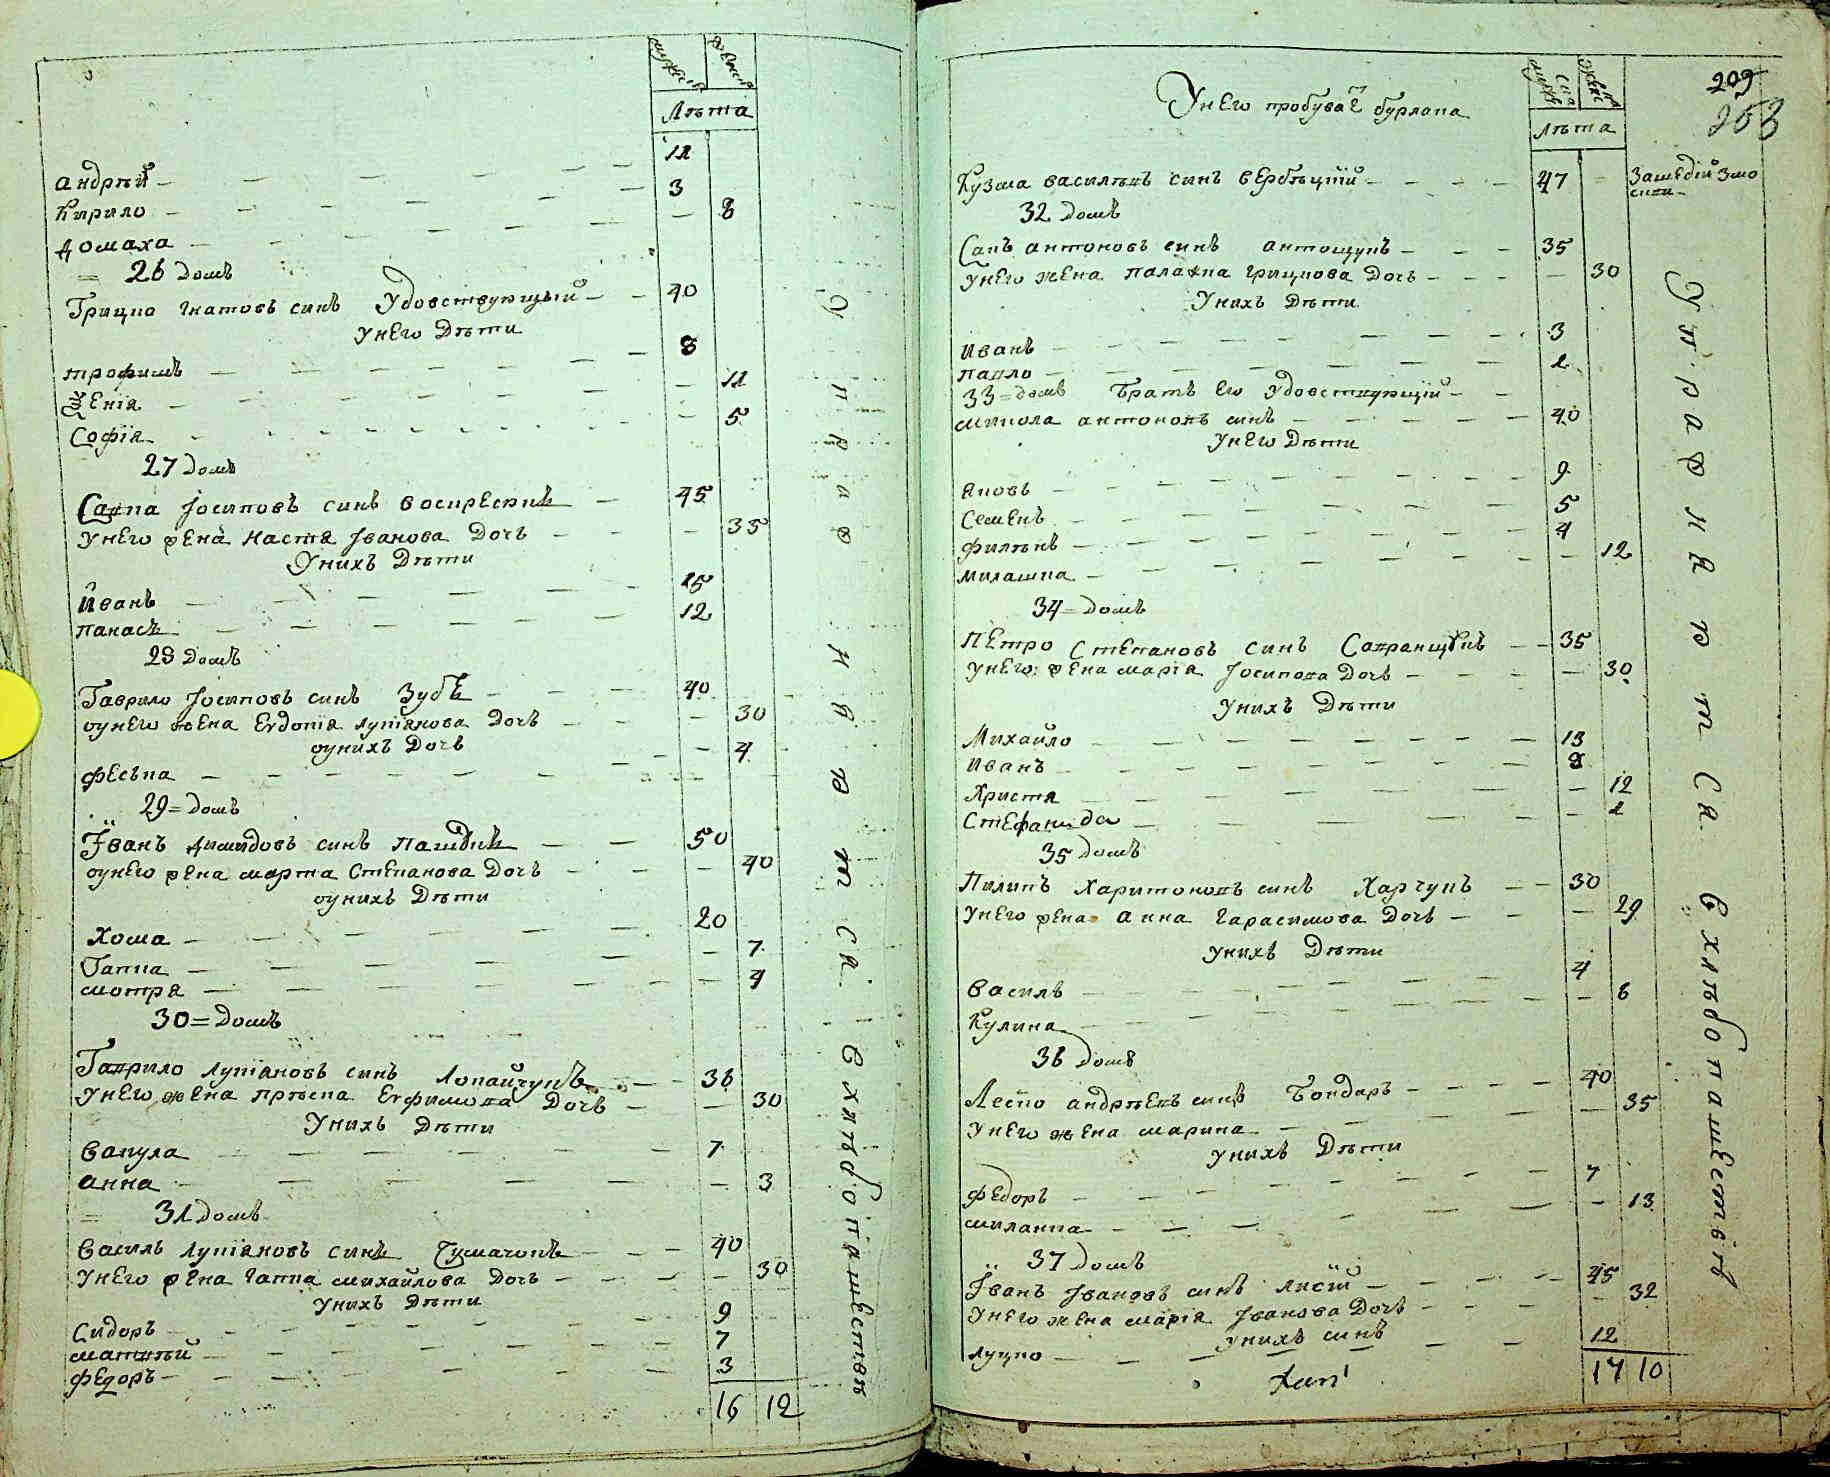 мужеска женска
Лѣта
андрѣй — 11
Кирило — 3
домаха — 8
= 26 домъ
Грицко гнатовъ синъ Удовствующый — 40
Унего Дѣти
трофимъ — 8
Ѯенія — 11
Софія — 5
27 домъ
Савка Іосиповъ синъ воскресникъ — 45
Унего жена Настя Іванова Дочъ — 35
Унихъ Дѣти
Иванъ — 15
панасъ — 12
28 домъ
Гаврило Іосиповъ синъ Зубъ — 40
оунего жена Евдокія лукіянова Дочъ — 30
оунихъ Дочъ
феська — 4
29= домъ
Іванъ димидовъ синъ — 50
оунего жена марта Степанова Дочъ — 40
оунихъ Дѣти
Хома — 20
Гапка — 7
мотря — 4
30= Домъ
Гаврило лукіановъ синъ Лопайчукъ — 36
Унего жена пріська Евфимова Дочъ — 30
Унихъ Дѣти
Вакула — 7
анна — 3
= 31 домъ
Василь лукіяновъ синъ Чумачокъ — 40
Унего жена гапка михайлова Дочъ — 30
Унихъ Дѣти
Сидоръ — 9
матвѣй — 7
федоръ — 3
16 12
Упражняются
в хлѣбопашествѣ
209
253
Унего пробуваетъ бурлака
мужеска женска
Лѣта
Кузма василѣвъ синъ вербѣцкій — 47
32 домъ
Сакъ антоновъ синъ антощукъ — 35
Унего жена палажка грицкова Дочъ — 30
Унихъ Дѣти
Иванъ — 3
павло — 2
33= домъ Братъ его Удовствующій
микола антоновъ синъ — 40
Унего Дѣти
Яковъ — 9
Семенъ — 5
филѣпъ — 4
милашка — 12
34= домъ
Петро Степановъ синъ — 35
Унего жена марія Іосипова Дочъ — 30
Унихъ Дѣти
Михайло — 13
Иванъ — 8
Христя — 12
Стефанида — 2
35 домъ
Пилипъ Харитоновъ синъ Харчукъ — 30
Унего жена анна гарасимова Дочъ — 29
Унихъ Дѣти
Василь — 4
Кулина — 6
36 домъ
Леско андрѣевъ синъ Бондаръ — 40
Унего жена марина — 35
Унихъ Дѣти
федоръ — 7
миланка — 13
37 домъ
Іванъ Івановъ синъ лисій — 45
Унего жена марія Іванова Дочъ — 32
Унихъ синъ
луцко — 12
17 10
Упражняются
в хлѣбопашествѣ